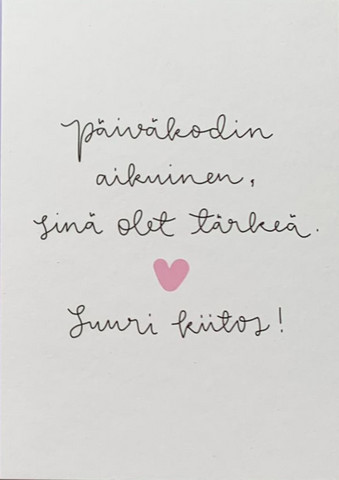 päiväkodin
aikuinen,
sinä olet tärkeä.
Suuri kiitos!